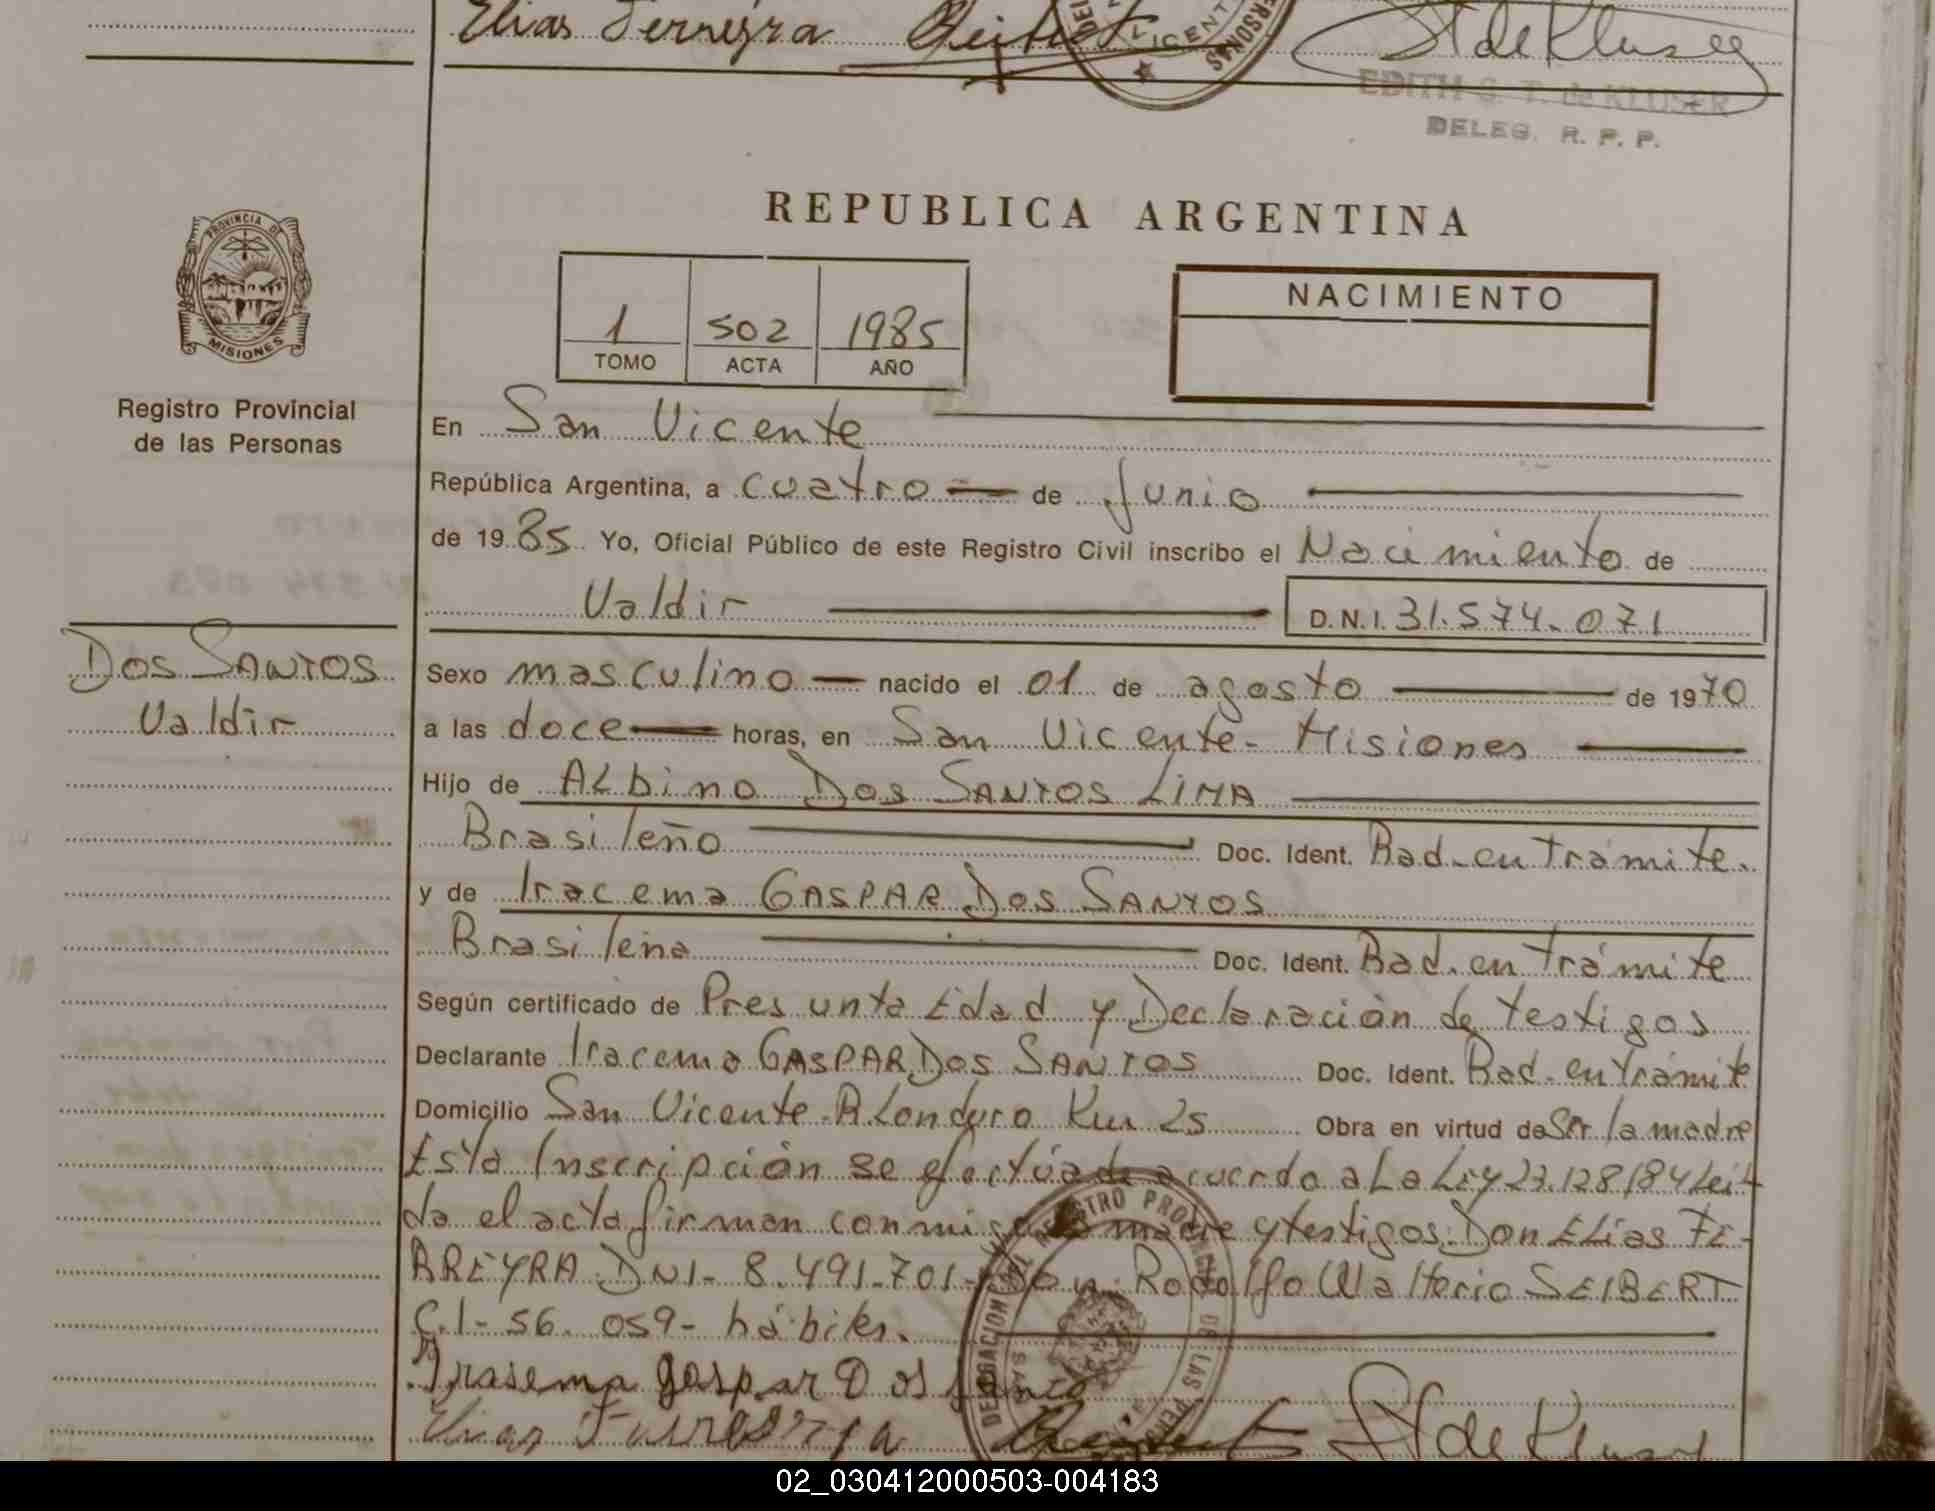 Elias Ferreyra
St de Kluser
EDITH S. T. de KLUSER
DELEG. R. P. P.
VICENT
REPUBLICA ARGENTINA
PROVINCIA DE
MISIONES
Registro Provincial
de las Personas
1 502 1985
TOMO ACTA AÑO
NACIMIENTO
En San Vicente
República Argentina, a cuatro de Junio
de 1985 Yo, Oficial Público de este Registro Civil inscribo el Nacimiento de
Valdir D.N.I. 31.574.071
DOS SANTOS
Valdir
Sexo masculino nacido el 01 de agosto de 1970
a las doce horas, en San Vicente - Misiones
Hijo de ALbino Dos SANTOS LIMA
Brasileño Doc. Ident. Rad. en Trámite.
y de Iracema GASPAR Dos SANTOS
Brasileña Doc. Ident. Rad. en Trámite
Según certificado de Presunta Edad y Declaración de testigos
Declarante Iracema GASPAR Dos SANTOS Doc. Ident. Rad. en Trámite
Domicilio San Vicente - R. Londero Km 25 Obra en virtud de Ser la madre
Esta Inscripción se efectúa de acuerdo a La Ley 23.128/84 Leí-
da el acta firman conmigo la madre y testigos: Don Elías FE-
RREYRA DNI - 8.491.701 - Don Rodolfo Walterio SEIBERT
C.I - 56.059 - hábiles.
Irasema gaspar Dos Santo
Elias Ferreyra St de Kluser
02_030412000503-004183